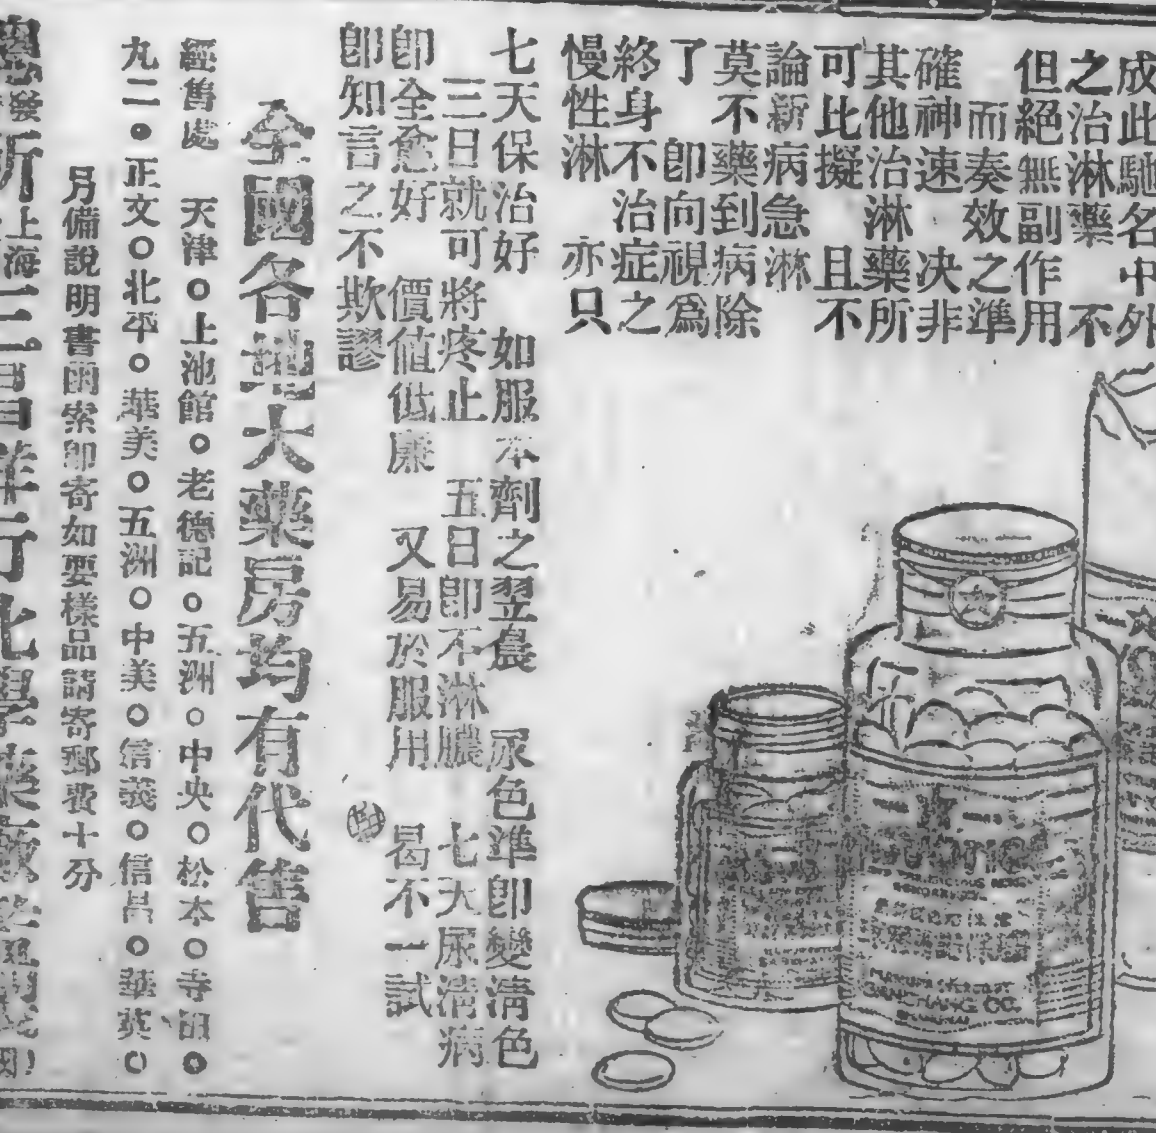 成此馳名中外
之治淋藥　不
但絕無副作用
而奏效之準
確神速　决非
其他治淋藥所
可比擬　且不
論新病急淋
莫不藥到病除
了　卽向視爲
終身不治症之
慢性淋　亦只
七天保治好　如服本劑之翌晨　尿色準卽變淸色
三日就可將疼止　五日卽不淋膿　七天尿淸病
卽全愈好　價値低廉　又易於服用　曷不一試
卽知言之不欺謬
全國各埠大藥房均有代售
經售處　天津○上池館○老德記○五洲○中央○松本○寺田○
九二○正文○北平○華美○五洲○中美○信義○信昌○華英○
另備說明書函索卽寄如要樣品請寄郵費十分
上海三
CO.